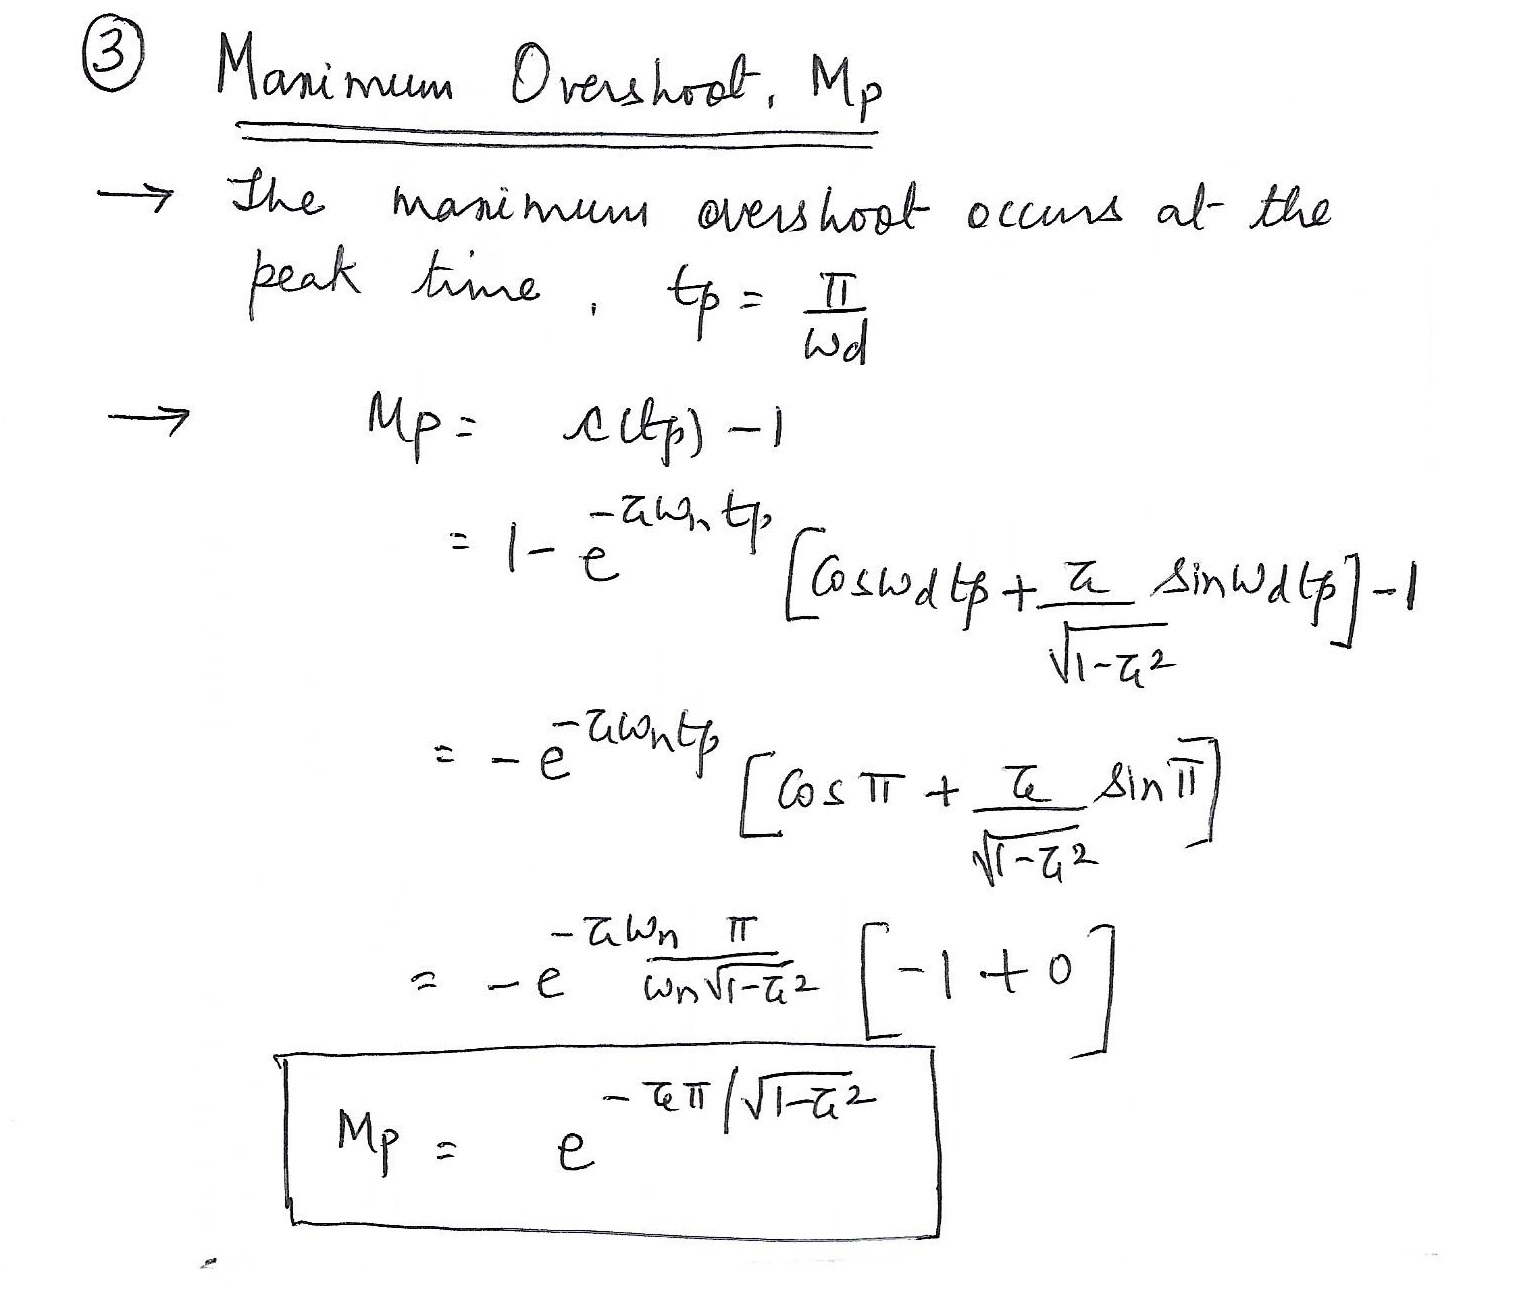 ③ Maximum Overshoot, Mp
→ The maximum overshoot occurs at the
peak time, tp = π/ωd
→ Mp = c(tp) - 1
= 1 - e^(-ζωn tp) [Cosωd tp + ζ/√(1-ζ²) sinωd tp] - 1
= - e^(-ζωn tp) [Cos π + ζ/√(1-ζ²) sin π]
= - e^(-ζωn π/(ωn√(1-ζ²))) [-1 + 0]
Mp = e^(-ζπ/√(1-ζ²))